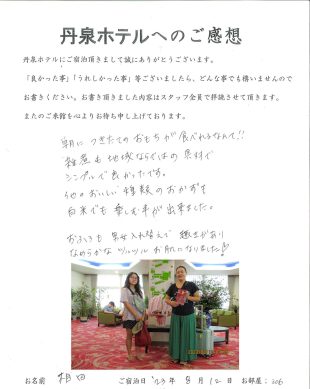 丹泉ホテルへのご感想
丹泉ホテルにご宿泊頂きまして誠にありがとうございます。
「良かった事」「うれしかった事」等ございましたら、どんな事でも構いませんので
お書きください。お書き頂きました内容はスタッフ全員で拝読させて頂きます。
またのご来館を心よりお待ち申し上げております。
朝につきたてのおもちが食べれるなんて!!
雑煮も地域ならではの具材で
シンプルで良かったです。
他のおいしい種類のおかずも
白米でも楽しむ事が出来ました。
おふろも男女入れ替えで趣きがあり
なめらかなツルツルお肌になりました!!
お名前 ご宿泊日 '23年 8月 12日 お部屋: 306